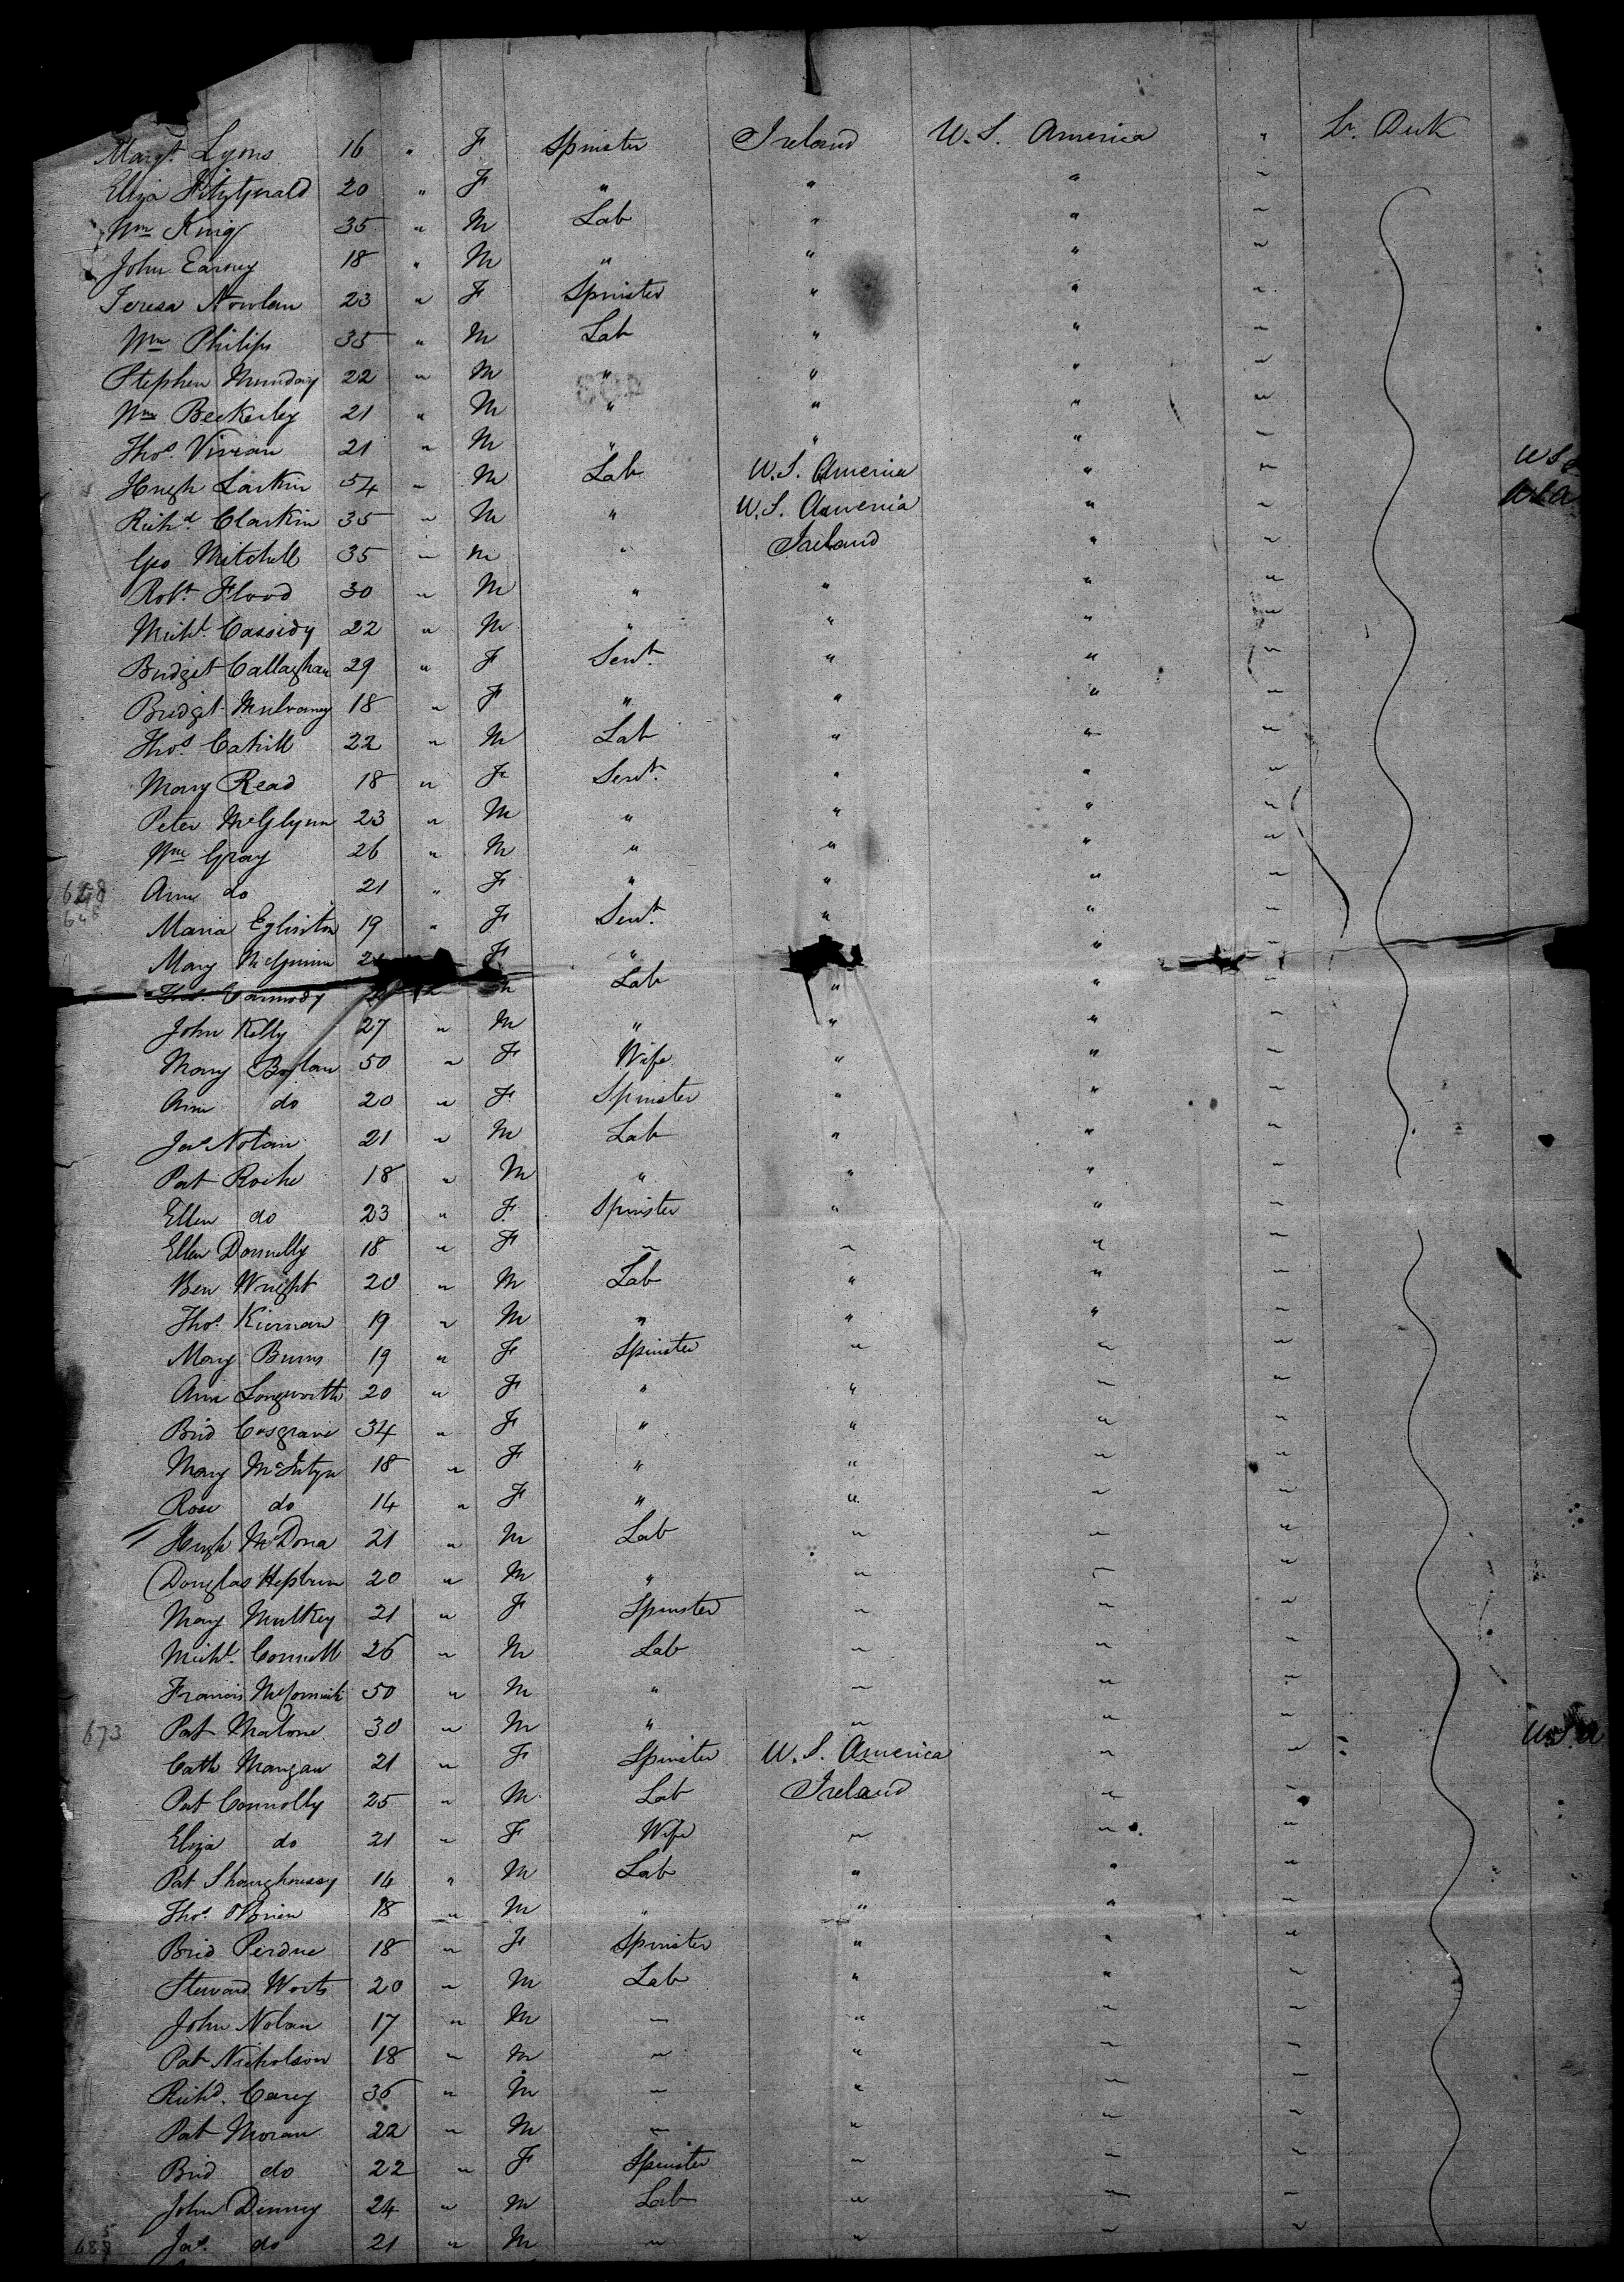 Margt Lyons 16 " F Spinster Ireland U.S. America " Lr. Deck
Eliza Fitzgerald 20 " F " " " "
Wm King 35 " M Lab " " "
John Earney 18 " M " " " "
Teresa Nowlan 23 " F Spinster " " "
Wm Philips 35 " M Lab " " "
Stephen Munday 22 " M " " " "
Wm Beckerley 21 " M " " " "
Thos. Vivian 21 " M " " " "
Hugh Larkin 54 " M Lab U.S. America " "
Richd Clarkin 35 " M " U.S. America " " USA
Geo Mitchell 35 " M " Ireland " "
Robt. Flood 30 " M " " " "
Michl. Cassidy 22 " M " " " "
Bridget Callaghan 29 " F Servt. " " "
Bridgt Mulvaney 18 " F " " " "
Thos. Cahill 22 " M Lab " " "
Mary Read 18 " F Servt. " " "
Peter McGlynn 23 " M " " " "
Wm Gray 26 " M " " " "
648 Ann do 21 " F " " " "
648 Maria Eglinton 19 " F Servt. " " "
Mary McGuinn F " " "
Thos. Carmody " M Lab " " "
John Kelly 27 " M " " " "
Mary Boylan 50 " F Wife " " "
Ann do 20 " F Spinster " " "
Jas Nolan 21 " M Lab " " "
Pat Roche 18 " M " " " "
Ellen do 23 " F Spinster " " "
Ellen Donnelly 18 " F " " " "
Ben Wright 20 " M Lab " " "
Thos. Kiernan 19 " M " " " "
Mary Burns 19 " F Spinster " " "
Ann Longworth 20 " F " " " "
Brid Cosgrave 34 " F " " " "
Mary McIntyre 18 " F " " " "
Rose do 14 " F " " " "
Hugh McDona 21 " M Lab " " "
Douglas Hepburn 20 " M " " " "
Mary Mulkey 21 " F Spinster " " "
Michl. Connell 26 " M Lab " " "
Francis McCormick 50 " M " " " "
673 Pat Malone 30 " M " " " "
Cath Mangan 21 " F Spinster U.S. America " " USA
Pat Connolly 25 " M Lab Ireland " "
Eliza do 21 " F Wife " " "
Pat Shaughnessy 14 " M Lab " " "
Thos. OBrien 18 " M " " " "
Brid Perdue 18 " F Spinster " " "
Steward Worts 20 " M Lab " " "
John Nolan 17 " M " " " "
Pat Nicholson 18 " M " " " "
Richd. Carey 36 " M " " " "
Pat Moran 22 " M " " " "
Brid do 22 " F Spinster " " "
John Denney 24 " M Lab " " "
Jas. do 21 " M " " " "